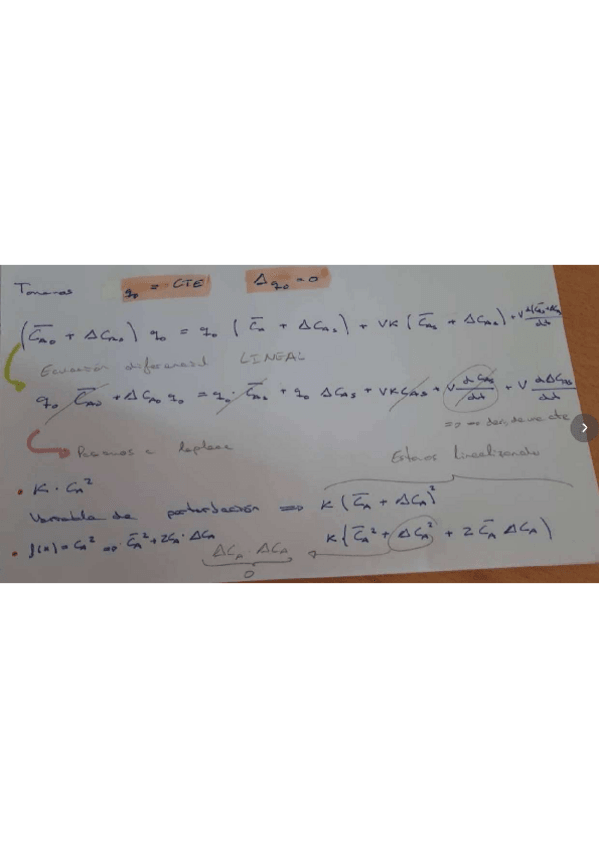 Tomamos q₀ = CTE Δq₀ = 0
(C̄A₀ + ΔCA₀) q₀ = q₀ (C̄A + ΔCAs) + VK (C̄As + ΔCAs) + V d(C̄As + ΔCAs)/dt
Ecuación diferencial LINEAL
q₀ C̄A₀ + ΔCA₀ q₀ = q₀ · C̄As + q₀ ΔCAs + VK CAs + V dCAs/dt + V dΔCAs/dt
Pasamos a Laplace
Estamos linealizando
• K · CA²
Variable de perturbación => K (C̄A + ΔCA)²
• f(x) = CA² => C̄A² + 2CA · ΔCA
K {C̄A² + ΔCA² + 2 C̄A ΔCA)
ΔCA ΔCA
0